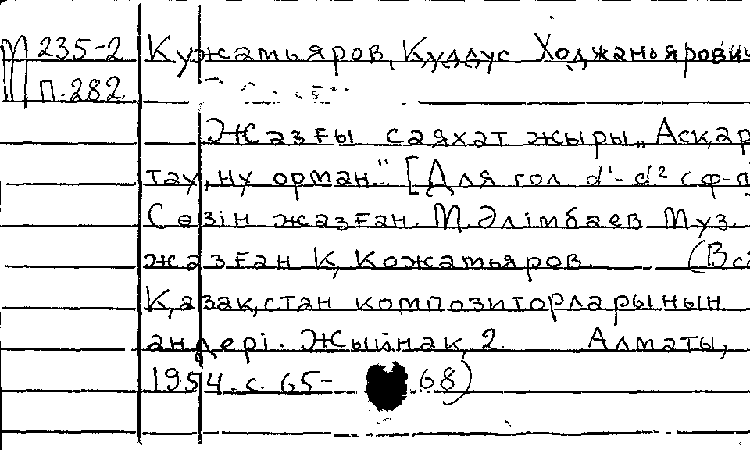 М 235-2 Кужамьяров, Куддус Ходжамьярович
П.282
Жазғы саяхат жыры „Асқар
тау, ну орман." [Для гол d¹-d² с ф-п
Сөзін жазған М. Әлімбаев Муз.
жазған К. Кожамьяров. (В сб
Қазақстан композиторларынын
андері. Жыйнак 2. Алматы,
1954. с. 65- 68)